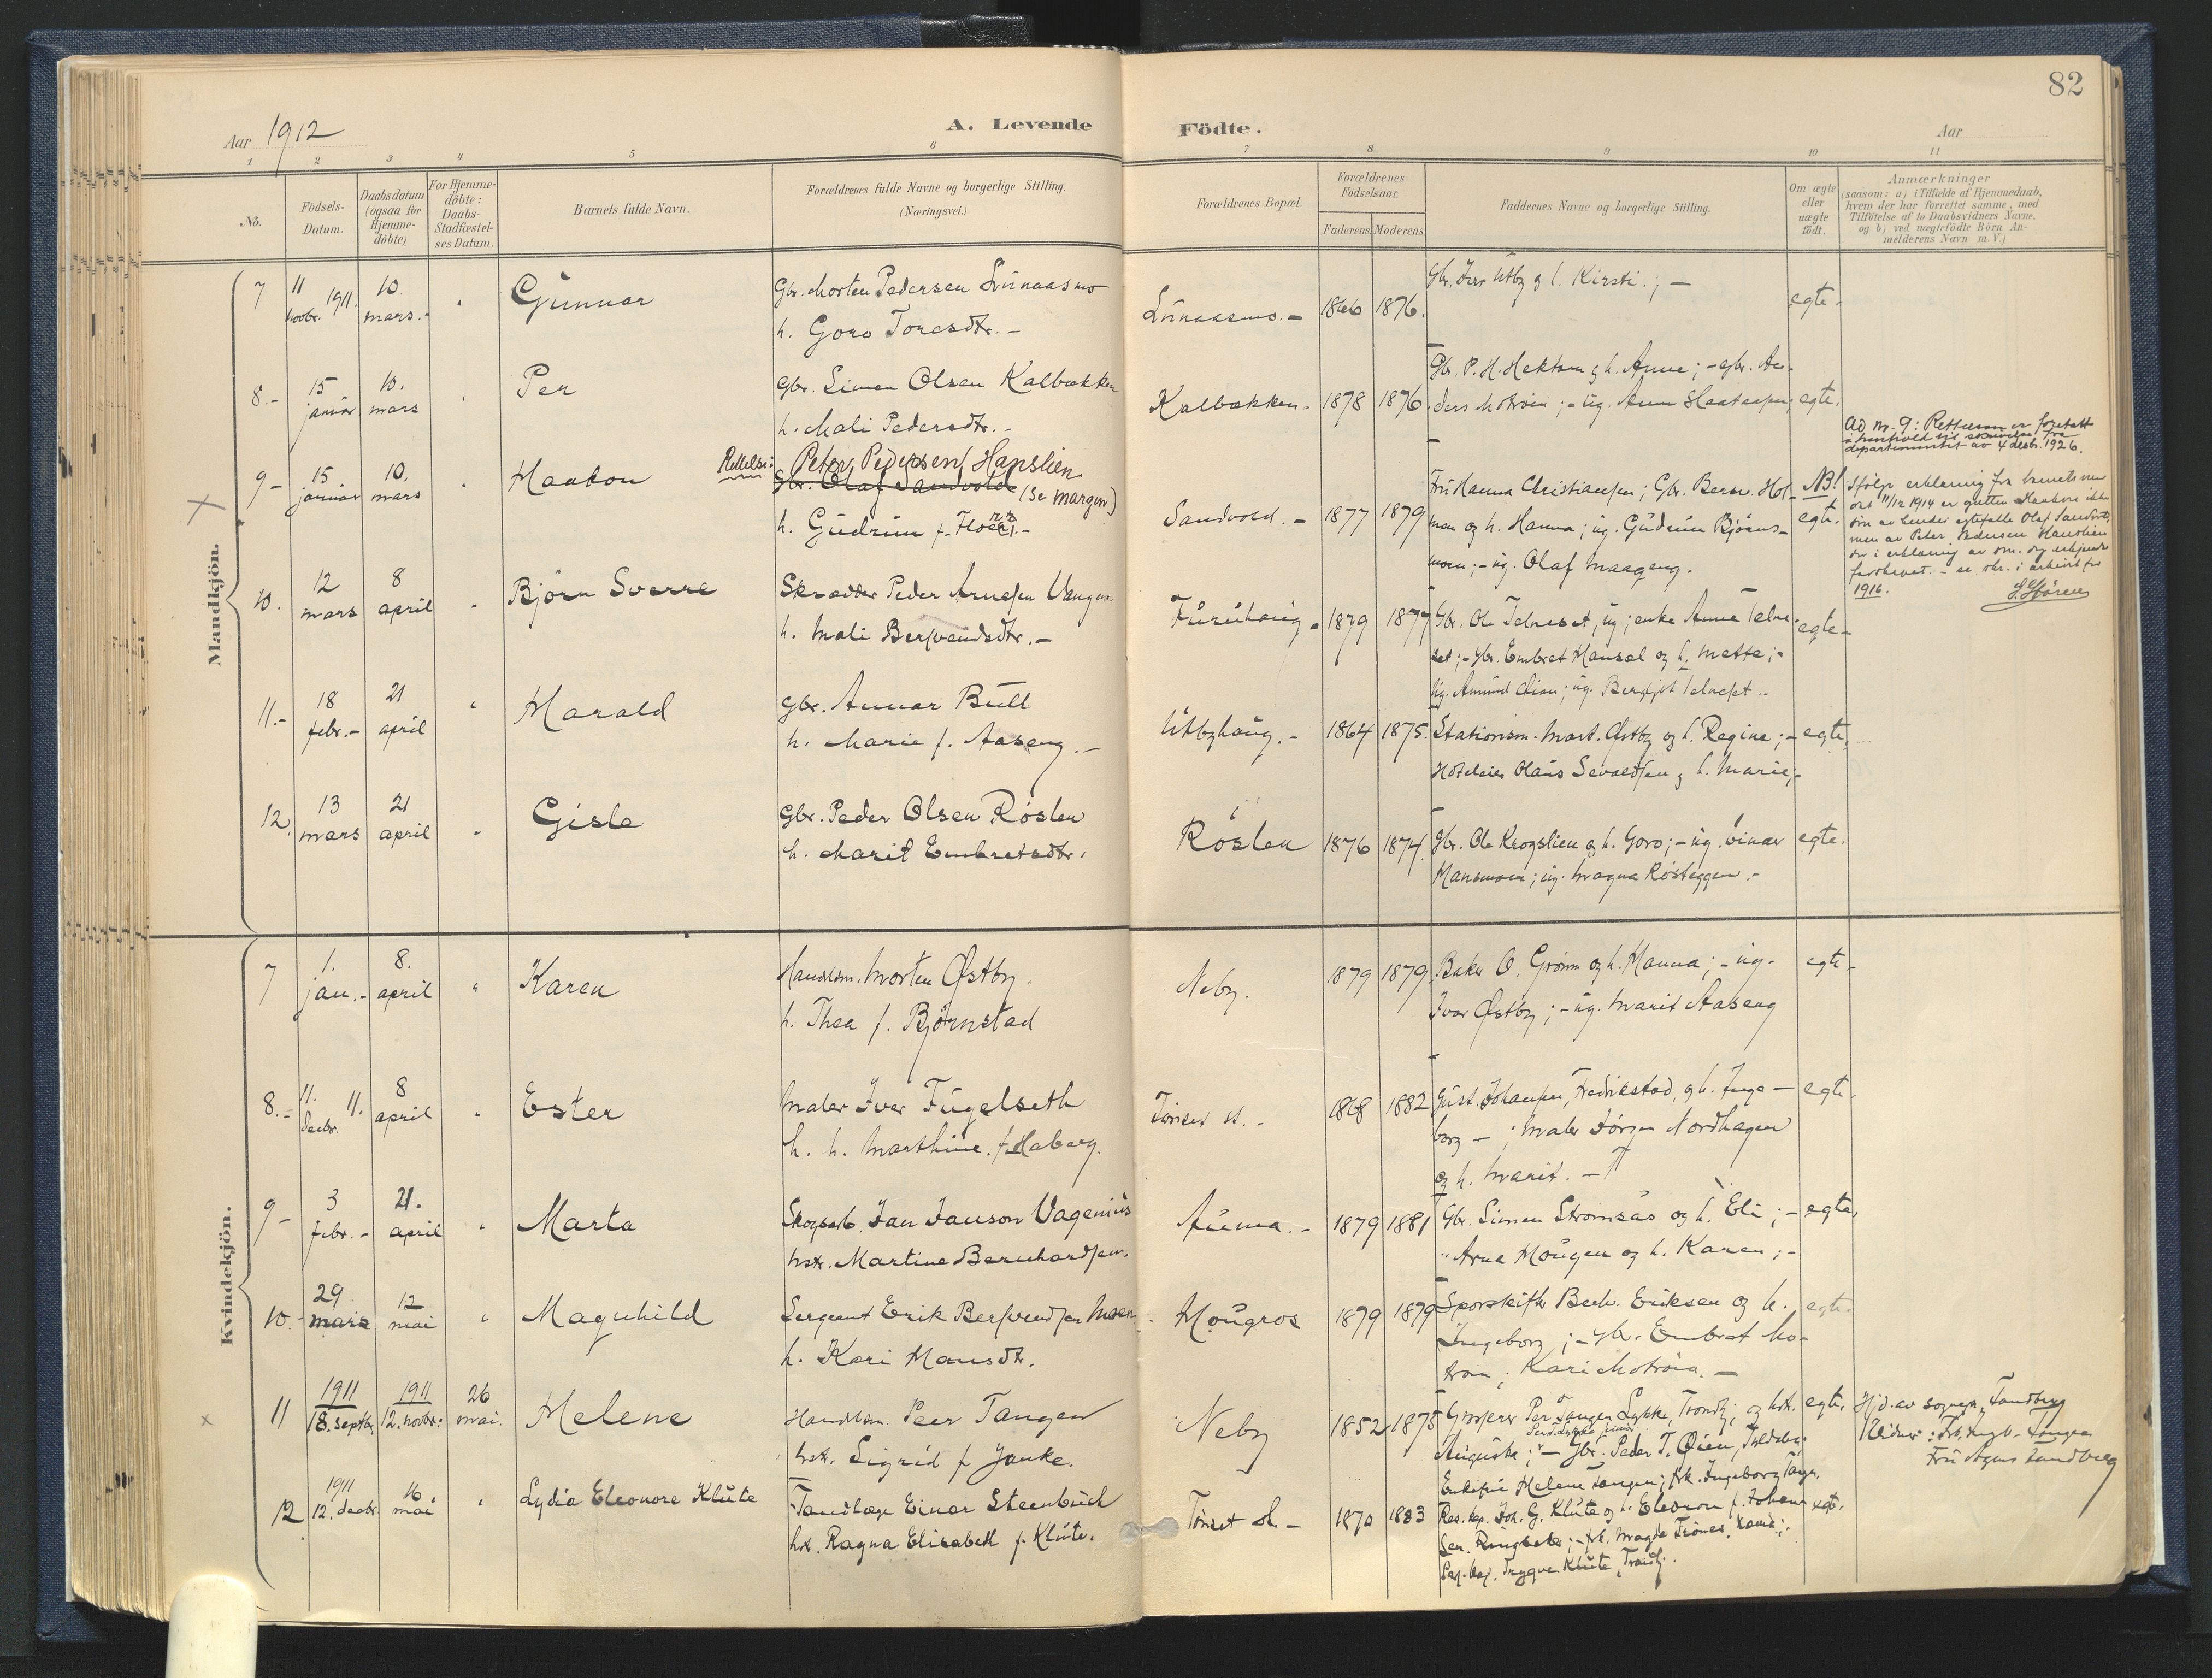 82
Aar 1912
A. Levende Födte.
Aar
1 2 3 4 5 6 7 8 9 10 11
No.
Födsels-Datum.
Daabsdatum (ogsaa for Hjemme-döbte)
For Hjemme-döbte: Daabs-Stadfæstel-ses Datum.
Barnets fulde Navn.
Forældrenes fulde Navne og borgerlige Stilling. (Næringsvei.)
Forældrenes Bopæl.
Forældrenes Födselsaar.
Faderens. Moderens.
Faddernes Navne og borgerlige Stilling.
Om ægte eller uægte födt.
Anmærkninger
(saasom: a) i Tilfælde af Hjemmedaab,
hvem der har forrettet samme, med
Tilföielse af to Daabsvidners Navne.
og b) ved uægtefödte Börn An-
melderens Navn m. V.)
Mandkjön.
7 11 novbr. 1911. 10. mars. " Gunnar
Gbr. Morten Pedersen Lünaasmo
h. Goro Toresdtr. -
Lünaasmo. - 1866 1876.
Gbr. Iver Utby og h. Kirsti.; -
egte.
8. - 15 januar 10. mars " Per
Gbr. Simen Olsen Kalbækken
h. Mali Pedersdtr. -
Kalbækken - 1878 1876
Gbr. P. H. Hektoen og h. Anne; - gbr. An-
ders Motröen; - ug. Anne
egte.
9 - 15 januar 10. mars " Haakon
Rettelse: Peter Pedersen Hanslien
Gbr. Olaf Sandvold (se margen)
h. Gudrun f. Floer. -
Sandvold. - 1877 1879
Fru Hanna Christiansen; Gbr. Bersv. Hol-
men og h. Hanna; ug. Gudrun Bjöens-
moen; - ug. Olaf Maageng.
NB!
egte.
Ad nr. 9: Rettelsen er foretatt
i henhold til skrivelse fra
departementet av 4 desb. 1926.
Ifølge erklæring fra barnets mor
dat 11/12 1914 er gutten Haakon ikke
søn av hendes egtefælle Olaf Sandvold,
men av Peter Pedersen Hanslien
der i erklæring av s.m. og erkjendt
farskapet. - se skr. i arkivet for
1916.
10. 12 mars 8 april " Björn Sverre
Skrædder Peder Arnesen Vangen
h. Mali Bersvendsdtr. -
Furuhaug - 1879 1877
Gbr. Ole Telneset, ug; enke Anne Telne-
set; - gbr. Embret Hansæl og h. Mette; -
ug. Amund Lien; ug. Bergljot Telneset. -
egte -
11. - 18 febr. - 21 april " Harald
Gbr. Annar Bull
h. Marie f. Aaseng. -
Utbyhaug. - 1864 1875.
Stationsm. Mart. Østby og h. Regine; -
Hoteleier Olaus Sevaldsen og h. Marie; -
egte.
12. 13 mars 21 april " Gisle
Gbr. Peder Olsen Röslen
h. Marit Embretsdtr.
Röslen 1876 1874.
Gbr. Ole Krogslien og h. Goro; - ug. Einar
Hansmoen; ug. Magna Rösteggen. -
egte.
Kvindekjön.
7 1. jan. - 8. april " Karen
Handelsm. Morten Østby.
h. Thea f. Björnstad
Neby. 1879 1879
Baker O. Grönn og h. Hanna; - ug.
Ivar Østby; - ug. Marit Aaseng
egte -
8. - 11. decbr. 11. 8 april " Ester
Maler Iver Fugelseth
h. h. Marthine f. Haberg.
Tönset st. - 1868 1882
Gust. Johansen, Fredrikstad, og h. Inge-
borg - ; Maler Jörgen Nordhagen
og h. Marit. -
egte.
9 - 3 febr. - 21. april " Marta
Skogsarb. Jan Janson Vagenius
hstr. Martine Bernhardsen.
Auma. - 1879 1881
Gbr. Simen Strömsás og h. Eli; -
" Arne Hougen og h. Karen; -
egte.
10. - 29 mars 12 mai " Magnhild
Sergeant Erik Bersvendsen Moen.
h. Kari Hansdtr.
Mougros 1879 1879
Sporskifter Bernh. Eriksen og h.
Ingeborg; - gbr. Embret Mo-
tröen; Kari Motröen. -
egte.
11 1911 18. septbr. 1911 12. novbr: 26 mai. Helene
Handelsm. Peer Tangen
hstr. Sigrid f Janke.
Neby 1852 1875
Grosserer Per Tangen Lykke, Trondhj. og hstr.
Augusta; - Gbr. Peder T. Øien,
Enkefru Helene Tangen; frk. Ingeborg Tangen.
egte.
Hjd. av sognepr. Sandberg
Vidner: Frk. Ingb. Tangen
Fru Agnes Sandberg
12 1911 12. decbr. 16 mai " Lydia Eleonore Klüte
Tandlæge Einar Steenbuch
hstr. Ragna Elisabeth f. Klüte.
Tönset st. - 1870 1883
Res. kap. Joh. G. Klüte og h. Eleonore f. Johan-
sen. Ringebu; - frk. Magda Fiönes,
Trygve Klüte, Trondhj.
egte.